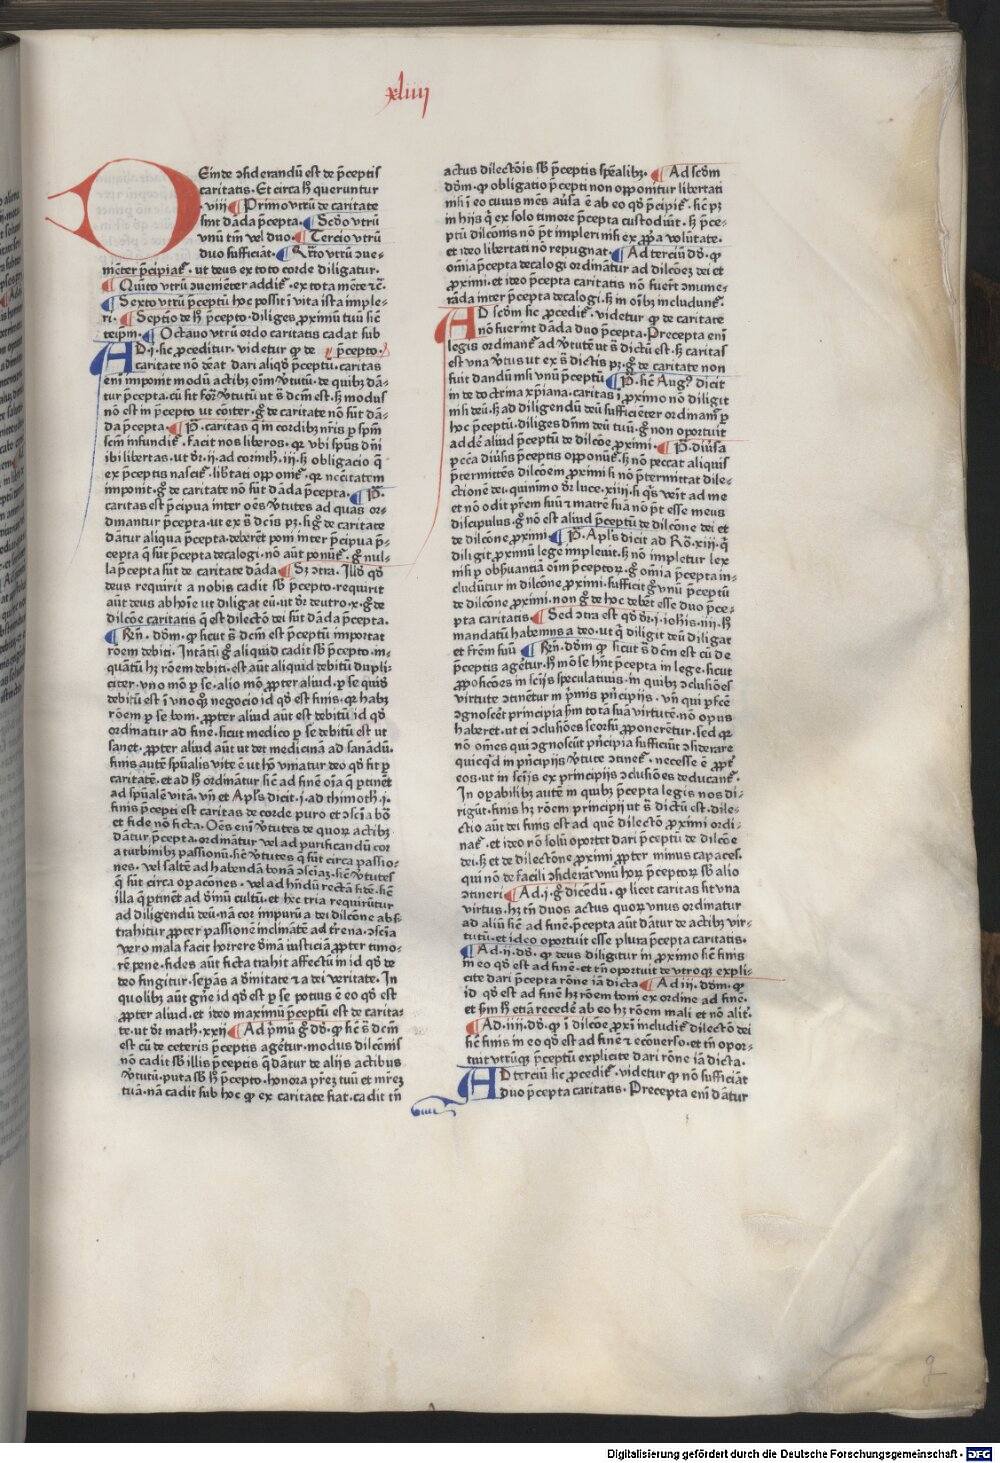 xliiij
DEinde ↄsiderandū est de p̄ceptis
caritatis. Et circa h̄ queruntur
.viij ¶ Primo vtrū de caritate
sint dāda p̄cepta. ¶ Scd̄o vtrū
vnū tm̄ vel duo. ¶ Tercio vtrū
duo sufficiāt. ¶ Qr̄to vtrū ↄue-
niēter p̄cipiat᷑. ut deus ex toto corde diligatur.
¶ Quīto vtrū ↄueniēter addit᷑. ex tota mēte ⁊c̄.
¶ Sexto vtrū p̄ceptū hoc possit ī vita ista imple-
ri. ¶ Septīo de h̄ p̄cepto. diliges proximū tuū sic̄
teip̄m. ¶ Octauo vtrū ordo caritatis cadat sub
AD .i. sic proceditur. videtur q̄ de p̄cepto.
caritate nō debeāt dari aliqd̄ p̄ceptū. caritas
enī imponit modū actibꝫ oīm v̄tutū. de quibꝫ dā-
tur p̄cepta. cū sit for̄ v̄tutū ut s̄ dcm̄ est. sꝫ modus
nō est in p̄cepto ut cōiter. g̊ de caritate nō sūt dā-
da p̄cepta. ¶ P̄. caritas q̄ in cordibꝫ nr̄is ꝑ sp̄m
scm̄ infundit᷑. facit nos liberos. qꝛ vbi sp̄us dn̄i
ibi libertas. ut dr̄ .ij. ad corinth̄ .iij. sꝫ obligacio q̄
ex p̄ceptis nascit᷑. lib̄tati opponit᷑. qꝛ nec̄itatem
imponit. g̊ de caritate nō sūt dāda p̄cepta. ¶ P̄.
caritas est p̄cipua inter oēs v̄tutes ad quas or-
dinantur p̄cepta. ut ex s̄ dcīs pꝫ. si g̊ de caritate
dātur aliqua p̄cepta. deberēt poni inter p̄cipua p̄-
cepta q̄ sūt p̄cepta decalogi. nō aūt ponūt᷑. g̊ nul-
la p̄cepta sūt de caritate dāda ¶ Sꝫ ↄtra. Illud̄ qd̄
deus requirit a nobis cadit sb̄ p̄cepto. requirit
aūt deus ab hoīe ut diligat eū. ut dr̄ deutro. x. g̊ de
dilcōe caritatis q̄ est dilectō dei sūt dāda p̄cepta.
¶ Rn̄. dōm. q̄ sicut s̄ dcm̄ est p̄ceptū importat
rōem debiti. Intātū g̊ aliquid cadit sb̄ p̄cepto. in-
quātū hꝫ rōem debiti. est aūt aliquid debitū dupli-
citer. vno mō ꝑ se. alio mō ꝓpter aliud. ꝑ se quid̄
debitū est ī vnoqꝫ negocio id qd̄ est finis. qꝛ habꝫ
rōem ꝑ se boni. ꝓpter aliud aūt est debitū id qd̄
ordinatur ad finē. sicut medico ꝑ se debitū est ut
sanet. ꝓpter aliud aūt ut det medicinā ad sanādū.
finis autē sp̄ualis vite ē ut hō vniatur deo qd̄ fit ꝑ
caritatē. et ad h̄ ordināntur sic̄ ad finē oīa q̄ ꝑtinēt
ad sp̄ualē vitā. vn̄ et Apl̄s dicit .i. ad thimoth̄ .i.
finis p̄cepti est caritas de corde puro et ↄscīa bo̅
et fide nō ficta. Oēs enī v̄tutes de quoꝝ actibꝫ
dātur p̄cepta. ordinātur vel ad purificandū cor
a turbinibꝫ passionū. sic̄ v̄tutes q̄ sūt circa passio-
nes. vel saltē ad habendā bonā ↄsciāꝫ. sic̄ v̄tutes
q̄ sūt circa opacōnes. vel ad hn̄dū rectā fidē. sic̄
illa q̄ ꝑtinēt ad diuinū cultū. et hec tria requirūtur
ad diligendū deū. nā cor impurū a dei dilcōne abs-
trahitur ꝓpter passionē inclinātē ad trēna. ↄscīa
vero mala facit horrere dīinā iusticiā ꝓpter timo-
rē pene. fides aūt ficta trahit affectū in id qd̄ de
deo fingitur. sepāns a dīinitate ⁊ a dei veritate. In
quolibꝫ aūt gn̄e id qd̄ est ꝑ se potius ē eo qd̄ est
ꝓpter aliud. et ideo maximū p̄ceptū est de carita-
te. ut dr̄ math̄ .xxij ¶ Ad p̄mū g̊ dd̄. q̄ sic̄ s̄ dcm̄
est cū de ceteris p̄ceptis agēt᷑ur. modus dilcōnis
nō cadit sb̄ illis p̄ceptis q̄ dātur de alijs actibus
v̄tutū. puta sb̄ h̄ p̄cepto. honora pr̄eꝫ tuū et mr̄eꝫ
tuā. nā cadit sub hoc q̄ ex caritate fiat. cadit tn̄
actus dilectōis sb̄ p̄ceptis sp̄ealibꝫ. ¶ Ad scdm̄
dōm. q̄ obligatio p̄cepti non opponitur libertati
nisi ī eo cuius mēs aūsa ē ab eo qd̄ p̄cipit᷑. sic̄ pꝫ
in hijs q̄ ex solo timore p̄cepta custodiūt. sꝫ p̄ce-
ptū dilcōnis nō pt̄ impleri nisi ex ꝓpa volūtate.
et ideo libertati nō repugnat. ¶ Ad terciū dd̄. q̄
omīa p̄cepta decalogi ordināntur ad dilcōneꝫ dei et
proximi. et ideo p̄cepta caritatis nō fuerūt ↄnume-
rāda inter p̄cepta decalogi. sꝫ in oībꝫ includunt᷑.
AD scdm̄ sic procedit᷑. videtur q̄ de caritate
nō fuerint dāda duo p̄cepta. Precepta enī
legis ordinant᷑ ad v̄tutē ut s̄ dictū est. sꝫ caritas
est vna v̄tus ut ex s̄ dictis pꝫ. g̊ de caritate non
fuit dandū nisi vnū p̄ceptū ¶ P̄. sic̄ Aug⁹ dicit
in de doctrina xp̄iana. caritas ī proximo nō diligit
nisi deū. sꝫ ad diligendū deū sufficiēter ordinamur ꝑ
hoc p̄ceptū. diliges dn̄m deū tuū. g̊ non oportuit
ad dē aliud p̄ceptū de dilcōe proximi. ¶ P̄. diu̅sa
pcc̄a diu̅sis p̄ceptis opponūt᷑. sꝫ nō peccat aliquis
p̄termittēs dilcōem proximi si nō p̄termittat dile-
ctionē dei. quinimo dr̄ luce .xiiij. si q̄s venit ad me
et nō odit pr̄em suū ⁊ matrē suā nō pt̄ esse meus
discipulus. g̊ nō est aliud p̄ceptū de dilcōne dei et
de dilcōne proximi ¶ P̄. Apl̄s dicit ad Ro̅. xiij. q̄
diligit proximū legē impleuit. sꝫ nō impletur lex
nisi ꝑ obs̄uantiā oīm p̄ceptoꝝ. g̊ omīa p̄cepta in-
cludūtur in dilcōne proximi. sufficit g̊ vnū p̄ceptū
de dilcōne proximi. non g̊ de hoc debēt esse duo p̄ce-
pta caritatis ¶ Sed ↄtra est qd̄ dr̄ .i. iohis .iiij. h̄
mandatū habemus a deo. ut q̄ diligit deū diligat
et frēm suū ¶ Rn̄. dōm. q̄ sicut s̄ dcm̄ est cū de
p̄ceptis agēt᷑ur. h̄ mō se hn̄t p̄cepta in lege. sicut
ꝓpoficōes in scijs speculatiuis. in quibꝫ ↄclusiōes
virtute ↄtinētur in p̄mis p̄ncipijs. vn̄ qui ꝑfc̄e
ↄgnoscēt principia s̄m tota suā virtutē. nō opus
haberet. ut ei ↄclusiōes scorsū ꝓponerētur. sed qꝛ
nō omēs qui ↄgnoscūt p̄ncipia sufficiūt ↄsiderare
quicqd̄ in p̄ncipijs v̄tute ↄtinet᷑. necesse ē ꝓpt̄
eos. ut in scijs ex principijs ↄclusiōes deducant᷑.
In opabilibꝫ autē in quibꝫ p̄cepta legis nos di-
rigūt. finis hꝫ rōem principij ut s̄ dictū est. dile-
ctio aūt dei finis est ad quē dilectō proximi ordi-
nat᷑. et ideo nō solū oportet dari p̄ceptū de dilcōe
dei. sꝫ et de dilectōne proximi ꝓpter minus capaces.
qui nō de facili ↄsiderāt vnū hoꝝ p̄ceptoꝝ sb̄ alio
ↄtineri ¶ Ad .i. g̊ dicēdū. q̄ licet caritas sit vna
virtus. hꝫ tn̄ duos actus quoꝝ vnus ordinatur
ad aliū sic̄ ad finē. p̄cepta aūt dātur de actibꝫ vir-
tutū. et ideo oportuit esse plura p̄cepta caritatis.
¶ Ad .ij. dd̄. q̄ deus diligitur in proximo sic̄ finis
in eo qd̄ est ad finē. et tn̄ oportuit de vtroqꝫ expli-
cite dari p̄cepta rōne iā dicta ¶ Ad iij. dōm. q̄
id qd̄ est ad finē hꝫ rōem boni ex ordine ad finē.
et s̄m h̄ etiā recedē ab eo hꝫ rōem mali et nō alit̄.
¶ Ad .iiij. dd̄. q̄ ī dilcōe proxi includit᷑ dilectō dei
sic̄ finis in eo qd̄ est ad finē ⁊ ecōuerso. et tn̄ opor-
tuit vtrūqꝫ p̄ceptū explicite dari rōne iā dicta.
AD terciū sic procedit᷑. videtur q̄ nō sufficiāt
duo p̄cepta caritatis. Precepta enī dātur
g
Digitalisierung gefördert durch die Deutsche Forschungsgemeinschaft - DFG